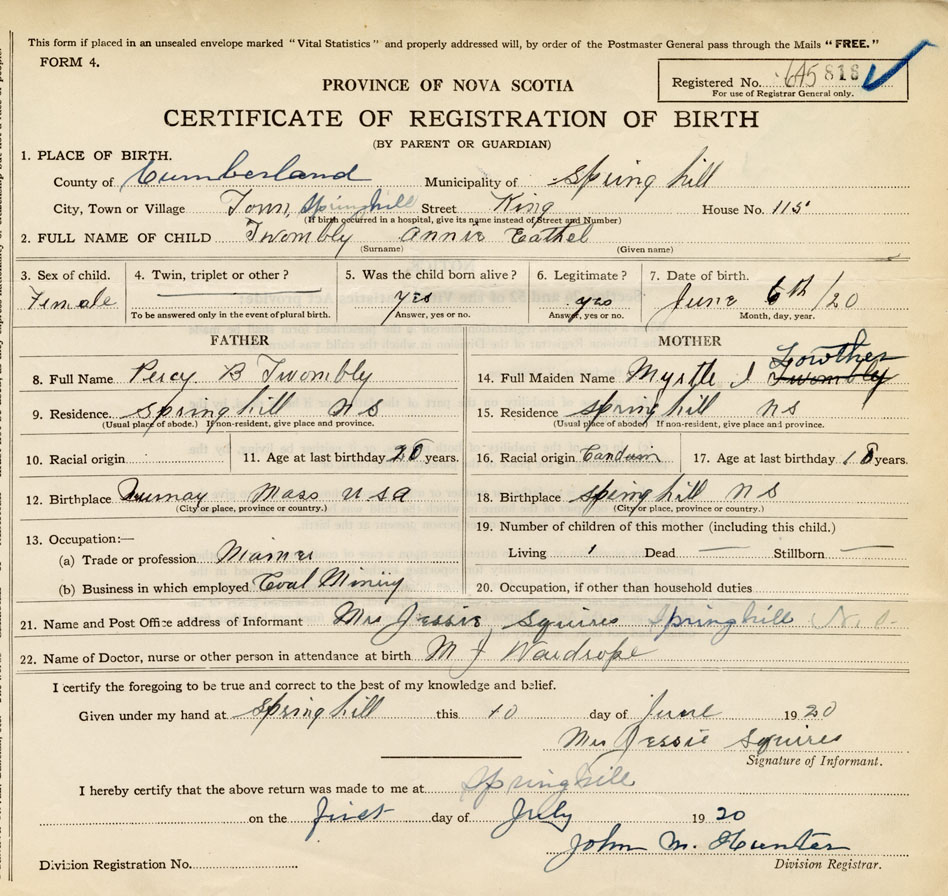 This form if placed in an unsealed envelope marked "Vital Statistics" and properly addressed will, by order of the Postmaster General pass through the Mails "FREE."
FORM 4.
Registered No. 645818
For use of Registrar General only.
PROVINCE OF NOVA SCOTIA
CERTIFICATE OF REGISTRATION OF BIRTH
(BY PARENT OR GUARDIAN)
1. PLACE OF BIRTH.
County of Cumberland Municipality of Spring hill
City, Town or Village Town, Springhill Street King House No. 115
(If birth occurred in a hospital, give its name instead of Street and Number)
2. FULL NAME OF CHILD Twombly Annie Eathel
(Surname) (Given name)
3. Sex of child. 4. Twin, triplet or other? 5. Was the child born alive? 6. Legitimate? 7. Date of birth.
Female yes yes June 6th/20
To be answered only in the event of plural birth. Answer, yes or no. Answer, yes or no. Month, day, year.
FATHER MOTHER
8. Full Name Percy B Twombly 14. Full Maiden Name Myrtle J Twombly Lowther
9. Residence Spring hill N S 15. Residence Spring hill N S
(Usual place of abode.) If non-resident, give place and province. (Usual place of abode.) If non-resident, give place and province.
10. Racial origin 11. Age at last birthday 20 years. 16. Racial origin 17. Age at last birthday 18 years.
12. Birthplace Mass U S A 18. Birthplace Spring hill N S
(City or place, province or country.) (City or place, province or country.)
13. Occupation:— 19. Number of children of this mother (including this child.)
(a) Trade or profession Living 1 Dead — Stillborn —
(b) Business in which employed Coal Mining 20. Occupation, if other than household duties
21. Name and Post Office address of Informant Mrs Jessie Squires Springhill N.S.
22. Name of Doctor, nurse or other person in attendance at birth M J Wardrope
I certify the foregoing to be true and correct to the best of my knowledge and belief.
Given under my hand at Spring hill this 10 day of June 1920
Mrs Jessie Squires
Signature of Informant.
I hereby certify that the above return was made to me at Springhill
on the first day of July 1920
John M. Hunter
Division Registration No. Division Registrar.